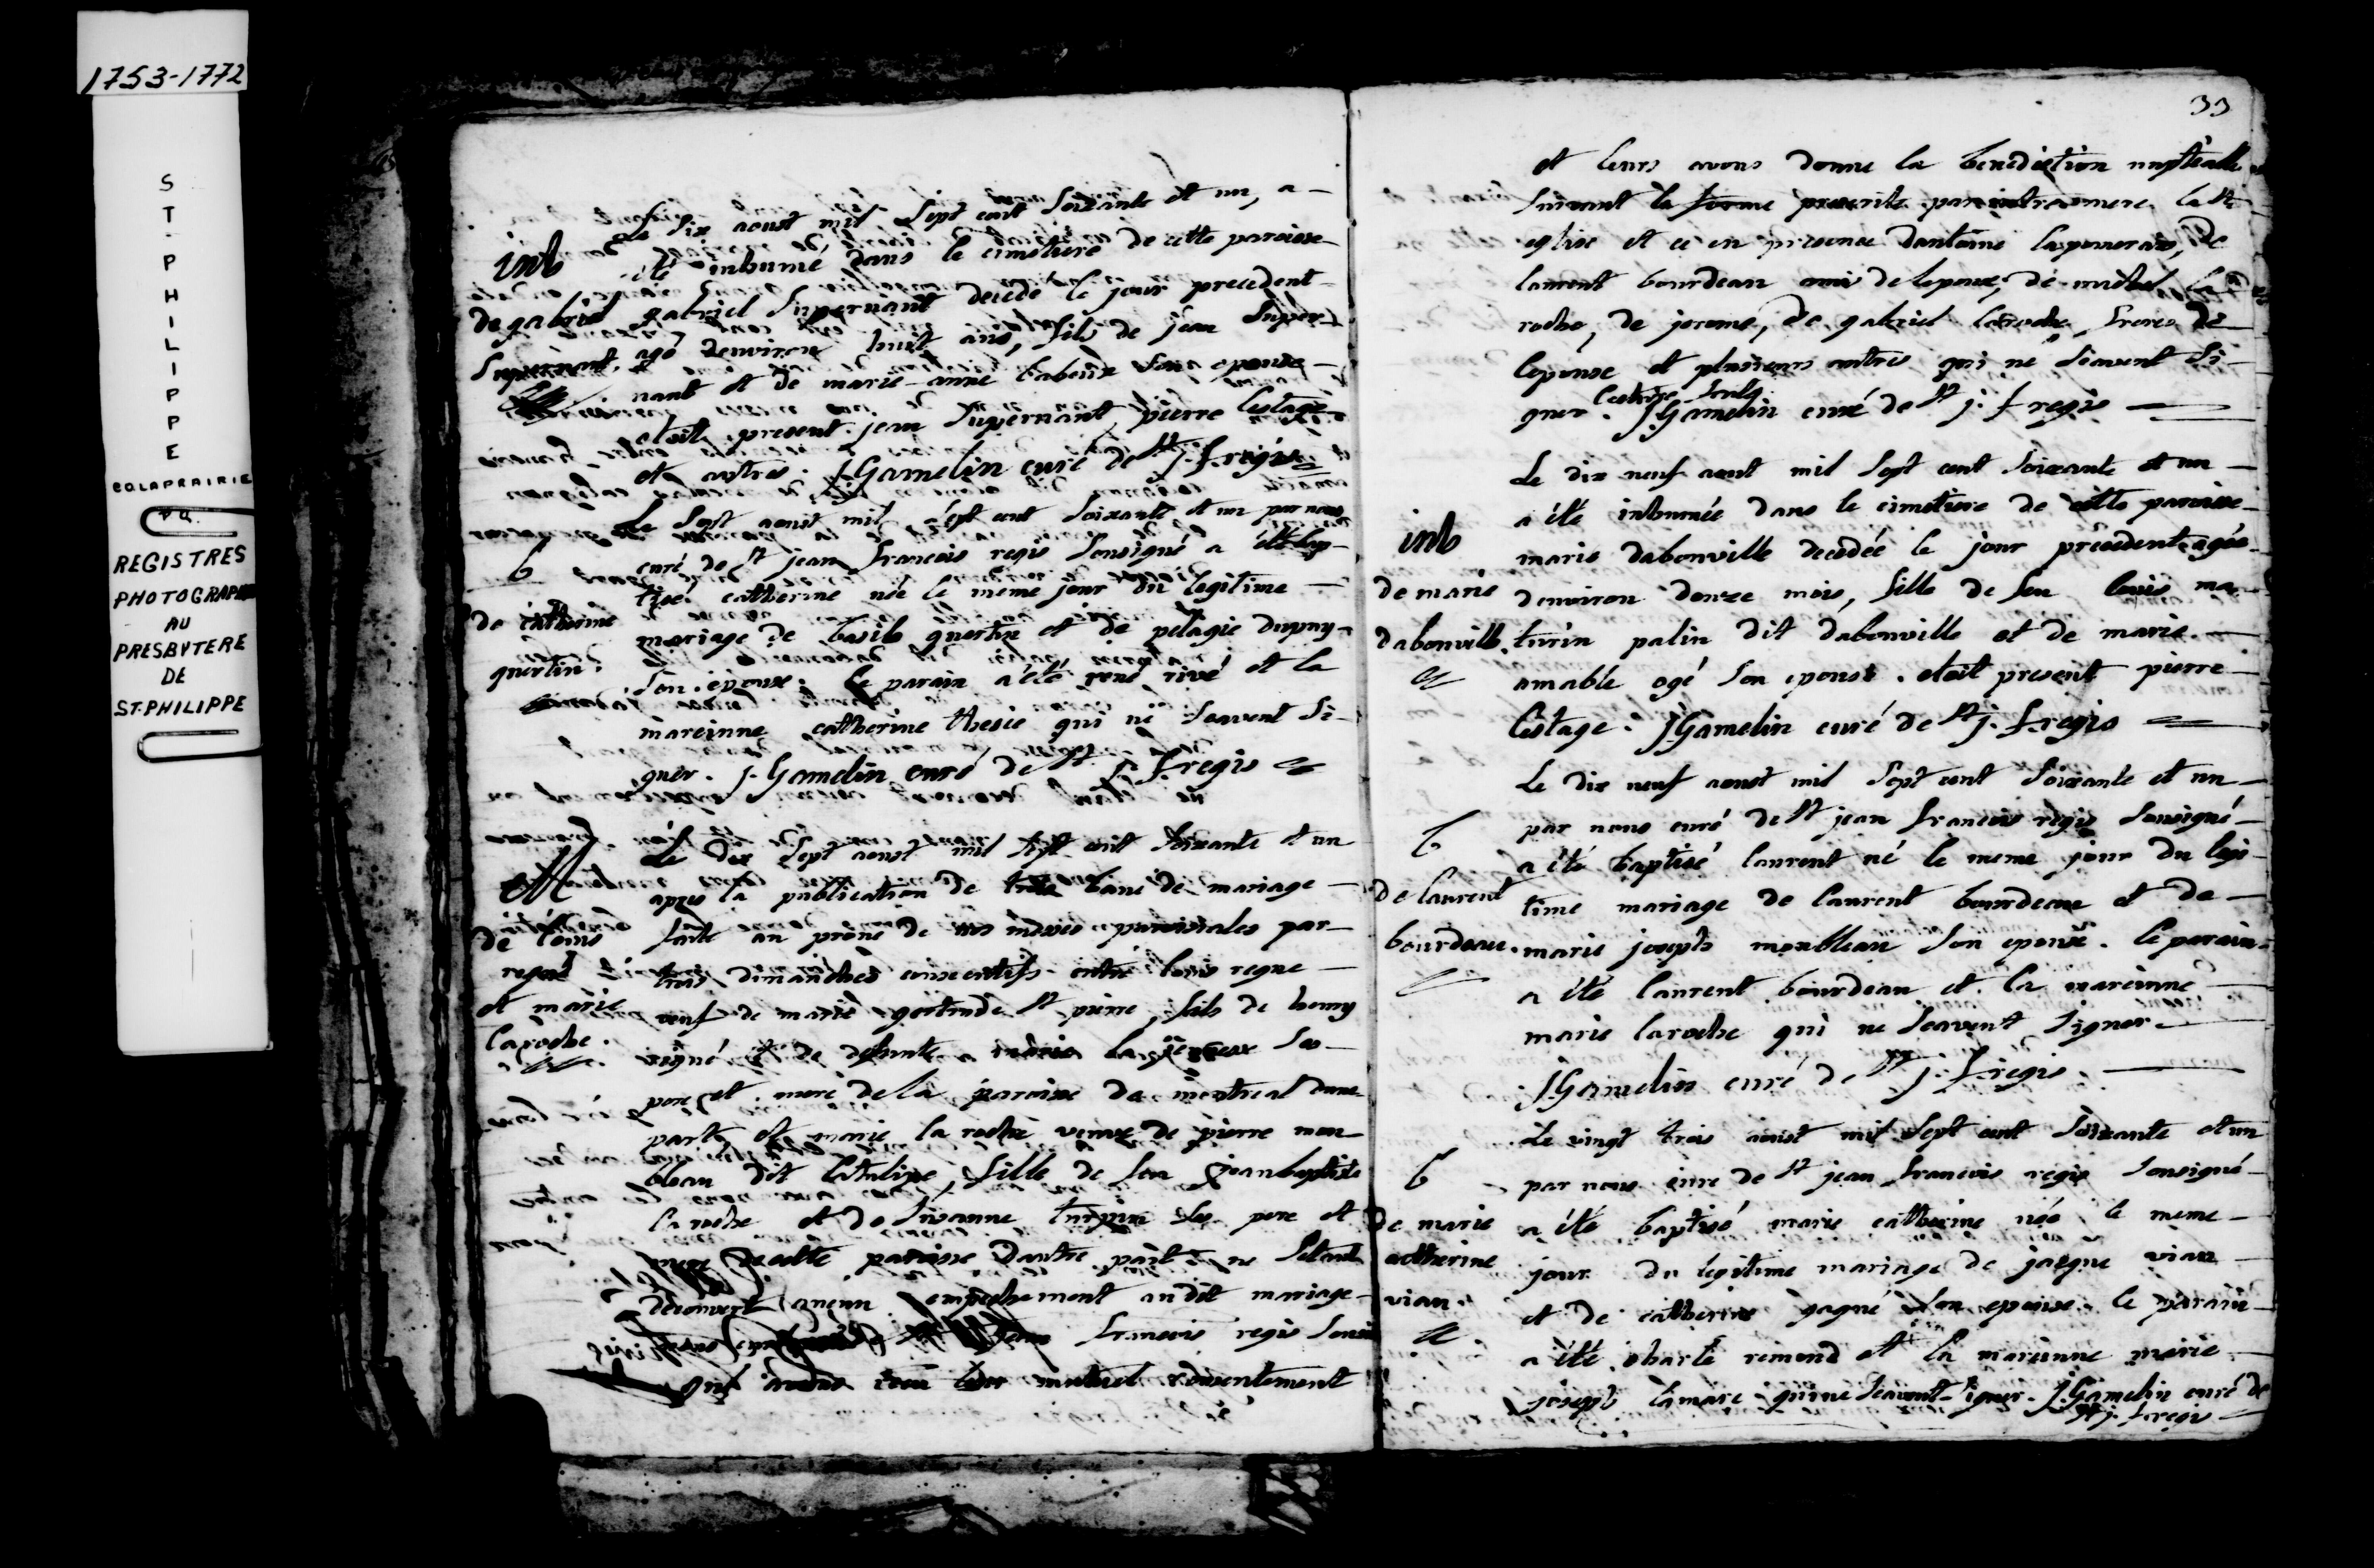 1753-1772
ST-PHILIPPE
CO LAPRAIRIE
P.Q.
REGISTRES
PHOTOGRAPH
AU
PRESBYTERE
DE
ST-PHILIPPE
Le six aoust mil sept cent soixante et un, a
inh
été inhumé dans le cimetiere de cette paroisse
de gabriel
gabriel supernant decedé le jour precedent
supernant
agé denviron huit ans, fils de jean super
nant et de marie-anne babeux son epouse
etoit present jean supernant pierre lestage
et autres. JGamelin curé de St j. f. regis
Le sept aoust mil sept cent soixante et un par nous
b
curé de St jean francois regis sousigné a été bap
tisé catherine née le meme jour du legitime
de catherine
mariage de basile quertin et de pelagie dupuy
quertin.
son epouse. le parain a été rené rivé et la
mareinne catherine thesie qui ne scavent si
gner. J. Gamelin curé de St j. f. regis
M
Le dix sept aoust mil sept cent soixante et un
apres la publication de trois bans de mariage
de louis
faite au prône de nos messes paroissiales par
regné
trois dimanches consecutifs entre louis regne
et marie
veuf de marie gertrude St pierre, fils de henry
laroche.
regné et de defunte marie ses
pere et mere de la paroisse de montreal dune
part, et marie la roche veuve de pierre mon
bleau dit fille de feu jean baptiste
la roche et de susanne turpin ses pere et
mere de cette paroisse dautre part ne setant
decouvert aucun empechement audit mariage
francois regis sousi
gné avons recu leur mutuel consentement
33
et leurs avons donne la benediction nuptialle
suivant la forme prescrite par notre mere la Ste
eglise et ce en presence dantoine lagemerais, de
laurent bourdeau amis de lepoux, de michel la
roche, de jerome, de gabriel laroche, freres de
lepouse et plusieurs autres qui ne scavent si
gner. JGamelin curé de St j. f. regis
Le dix neuf aoust mil sept cent soixante et un
a été inhumée dans le cimetiere de cette paroisse
inh
marie dabonville decedée le jour precedent agée
de marie
denviron douze mois, fille de feu louis ma
dabonville.
turin palin dit dabonville et de marie
amable ogé son epouse. etoit present pierre
lestage. JGamelin curé de St j. f. regis
Le dix neuf aoust mil sept cent soixante et un
par nous curé de St jean francois regis sousigné
b
a été baptisé laurent né le meme jour du legi
de laurent
time mariage de laurent bourdeau et de
bourdeau.
marie joseph monbleau son epouse. le parain
a été laurent bourdeau et la mareinne
marie laroche qui ne scavent signer
JGamelin curé de St j. f. regis.
Le vingt trois aoust mil sept cent soixante et un
b
par nous curé de St jean francois regis sousigné
de marie
a été baptisé marie catherine née le meme
catherine
jour du legitime mariage de jacque vian
vian.
et de catherine gagné son epouse. le parain
a été charle remond et la mareinne marie
joseph lamare qui ne scavent signer. JGamelin curé de
St j. f. regis